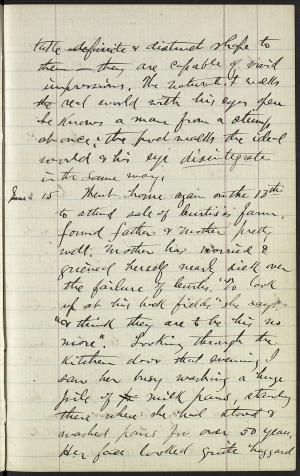 take definite & distinct shape to
them — they are capable of vivid
impressions. The naturalist walks
the real world with his eyes open
he knows a man from a stump
at once; the poet walks the ideal
world & his eye disintegrate
in the same way.
June 15 Went home again on the 13th
to attend sale of Curtis's farm.
found father & Mother pretty
well. Mother has worried &
grieved herself nearly sick over
the failure of Curtis. "To look
up at his back fields" she says,
"& think they are to be his no
more". Looking through the
kitchen door that evening I
saw her busy washing a huge
pile of milk pans, standing
there where she had stood &
washed pans for over 50 years.
Her face looked quite haggard